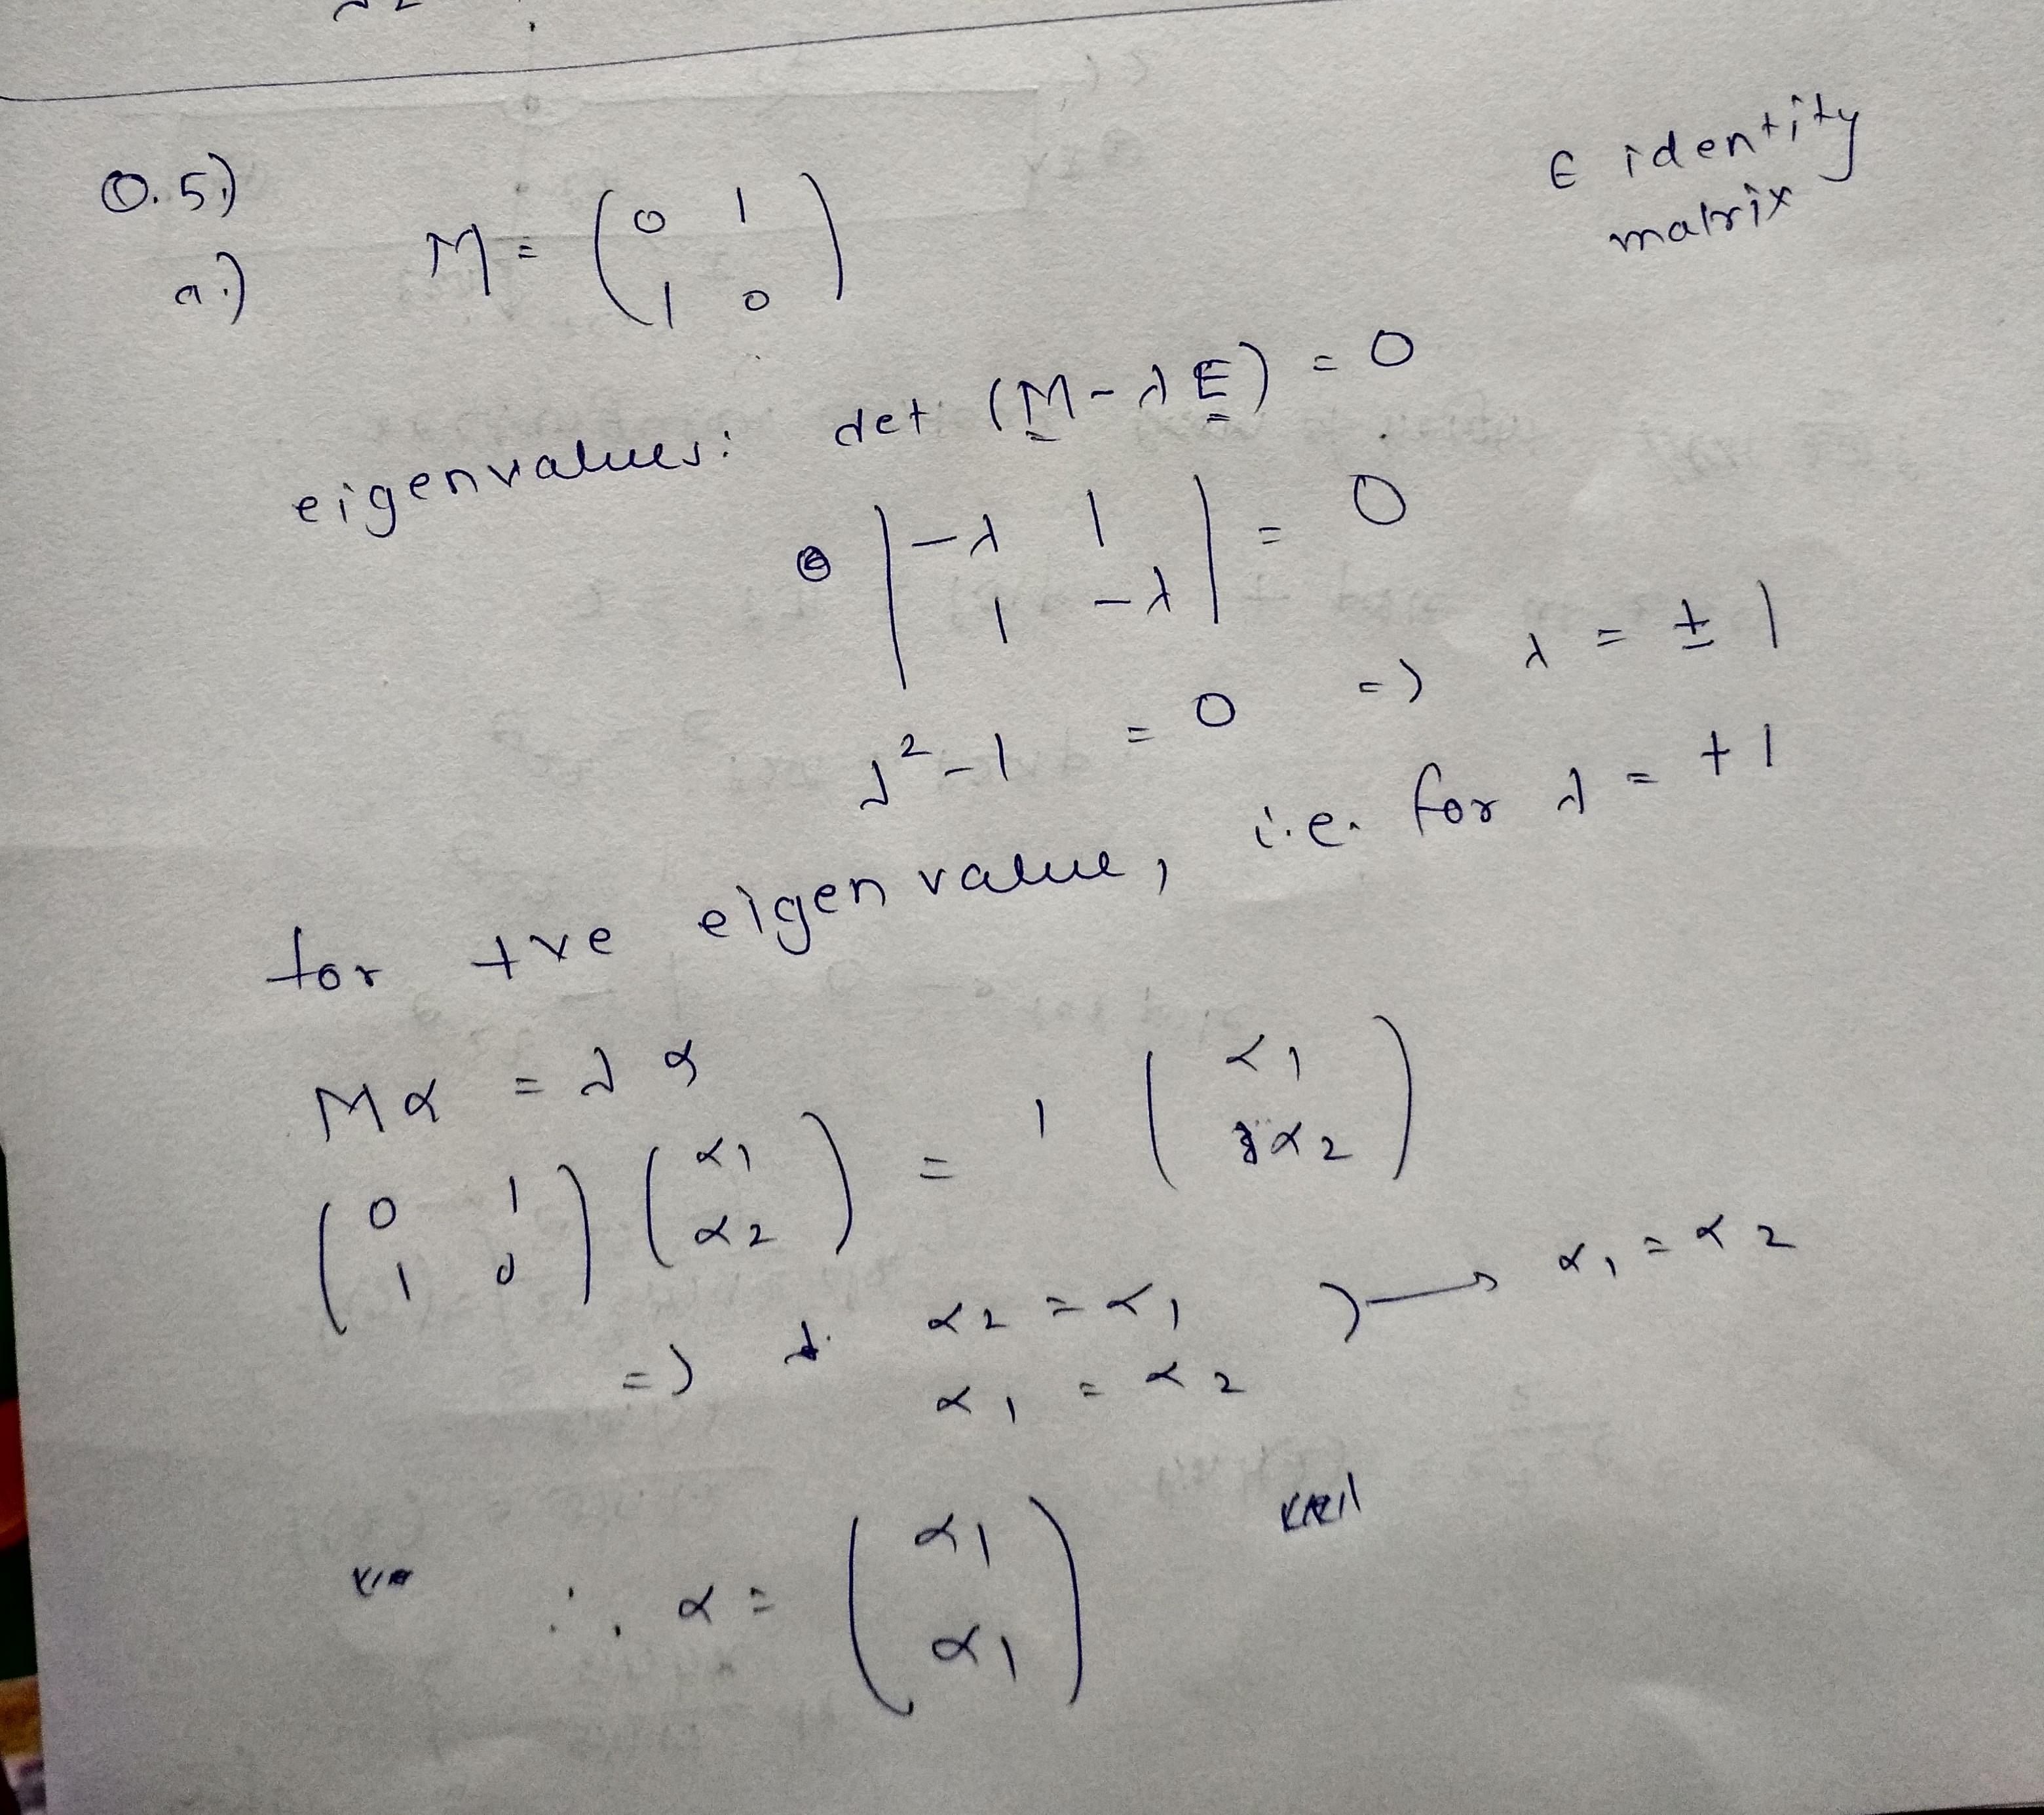 Q.5)
a.) M = ( 0 1
1 0 )
E identity
matrix
eigenvalues: det (M - λE) = 0
| -λ 1
1 -λ | = 0
λ² - 1 = 0 => λ = ± 1
for +ve eigen value, i.e. for λ = +1
Mα = λα
( 0 1
1 0 ) ( α1
α2 ) = 1 ( α1
α2 )
=> α2 = α1
α1 = α2 } → α1 = α2
∴ α = ( α1
α1 )